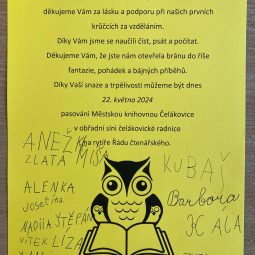 děkujeme Vám za lásku a podporu při našich prvních
krůčcích za vzděláním.
Díky Vám jsme se naučili číst, psát a počítat.
Děkujeme Vám, že jste nám otevřela bránu do říše
fantazie, pohádek a bájných příběhů.
Díky Vaší snaze a trpělivosti můžeme být dnes
22. května 2024
pasováni Městskou knihovnou Čelákovice
v obřadní síni čelákovické radnice
na rytíře Řádu čtenářského.
ANEŽKA
ZLATA MÍŠA
KUBA
ALENKA
Barbora
MADLA ŠTĚPÁN
VÍTEK LÍZA